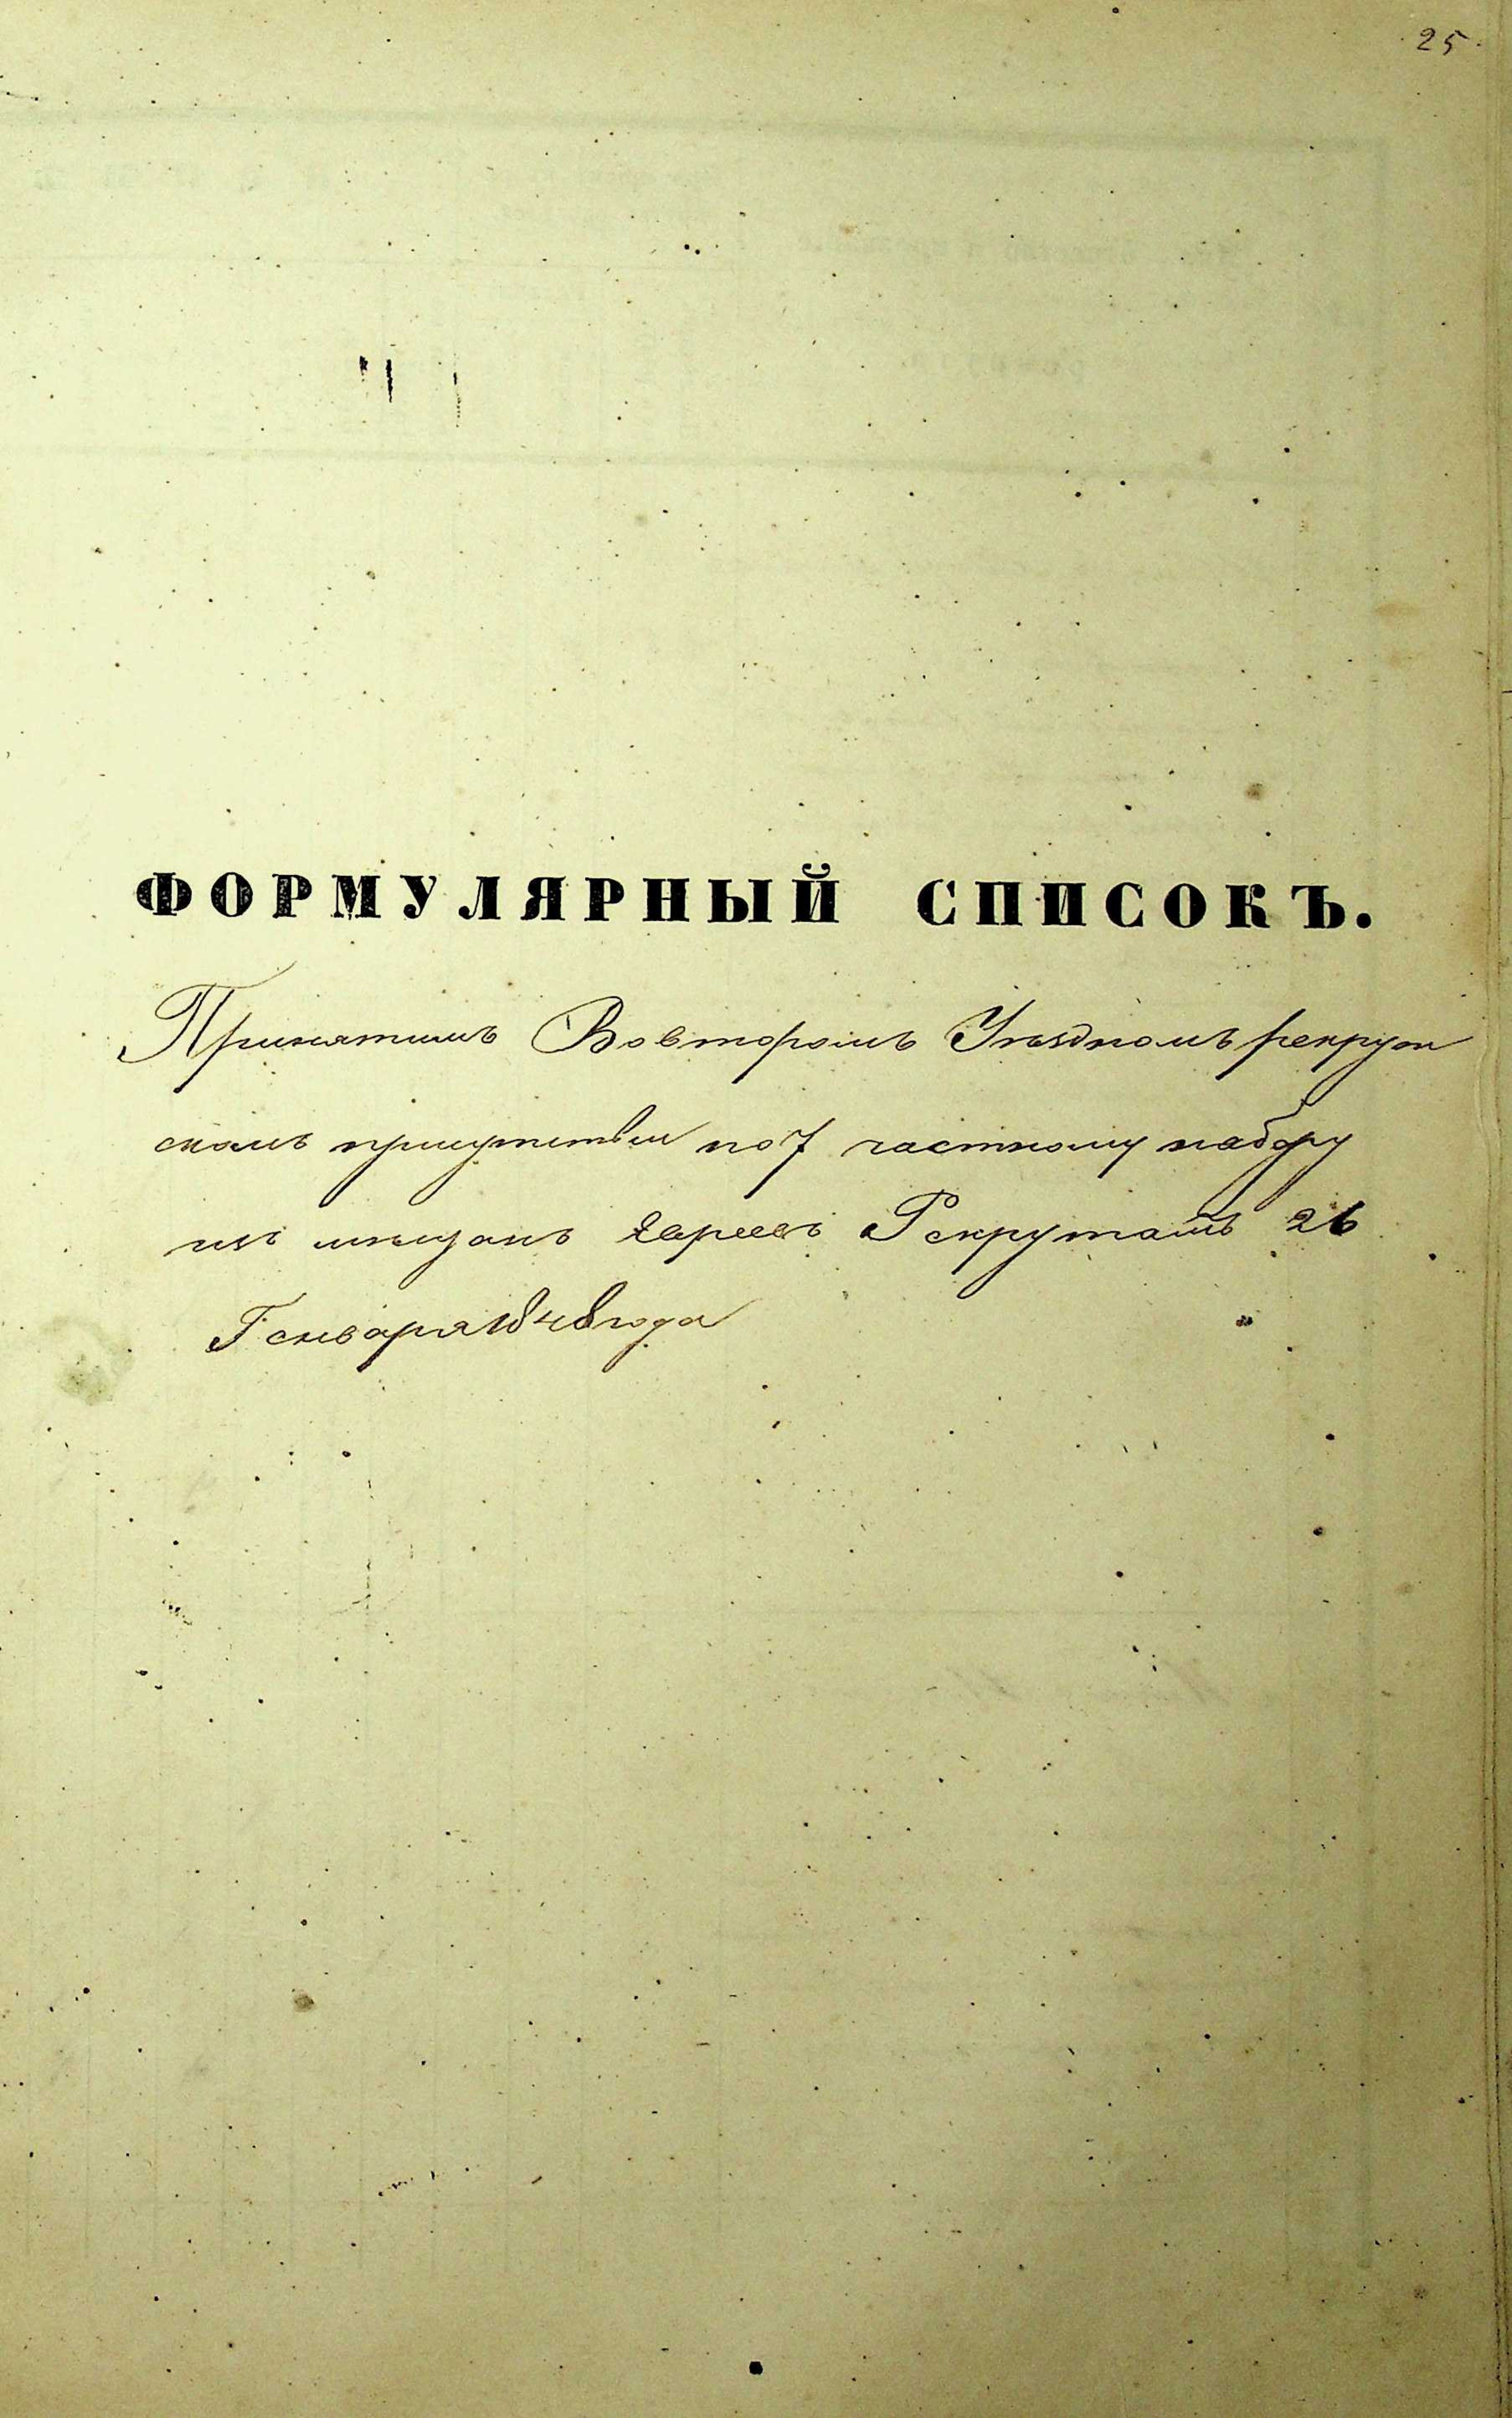 25
ФОРМУЛЯРНЫЙ СПИСОКЪ.
Принятымъ Вовторомъ Уѣздномъ рекрут
скомъ присутствіи по 7 частному набору
изъ мѣщанъ Евреевъ Рекрутамъ 26
Генваря 1848 года